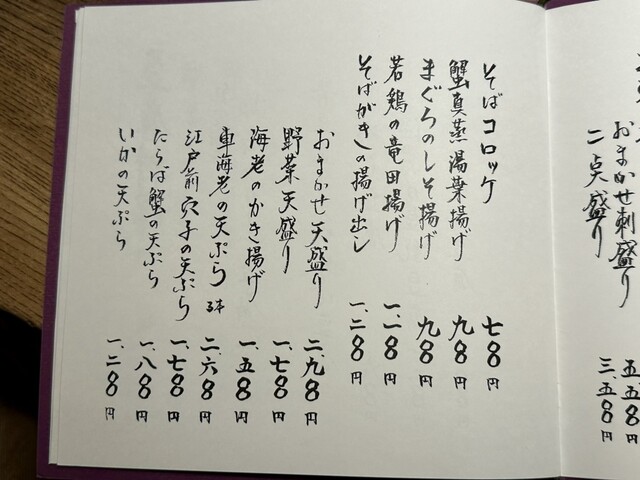 おまかせ刺盛り
二点盛り 三、五〇〇円
そばコロッケ 七〇〇円
蟹真蒸湯葉揚げ 九〇〇円
まぐろのしそ揚げ 九〇〇円
若鶏の竜田揚げ 一、一〇〇円
そばがきの揚げ出し 一、二〇〇円
おまかせ天盛り 二、九〇〇円
野菜天盛り 一、七〇〇円
海老のかき揚げ 一、五〇〇円
車海老の天ぷら 二、六〇〇円
江戸前穴子の天ぷら 一、七〇〇円
たらば蟹の天ぷら 一、八〇〇円
いかの天ぷら 一、二〇〇円